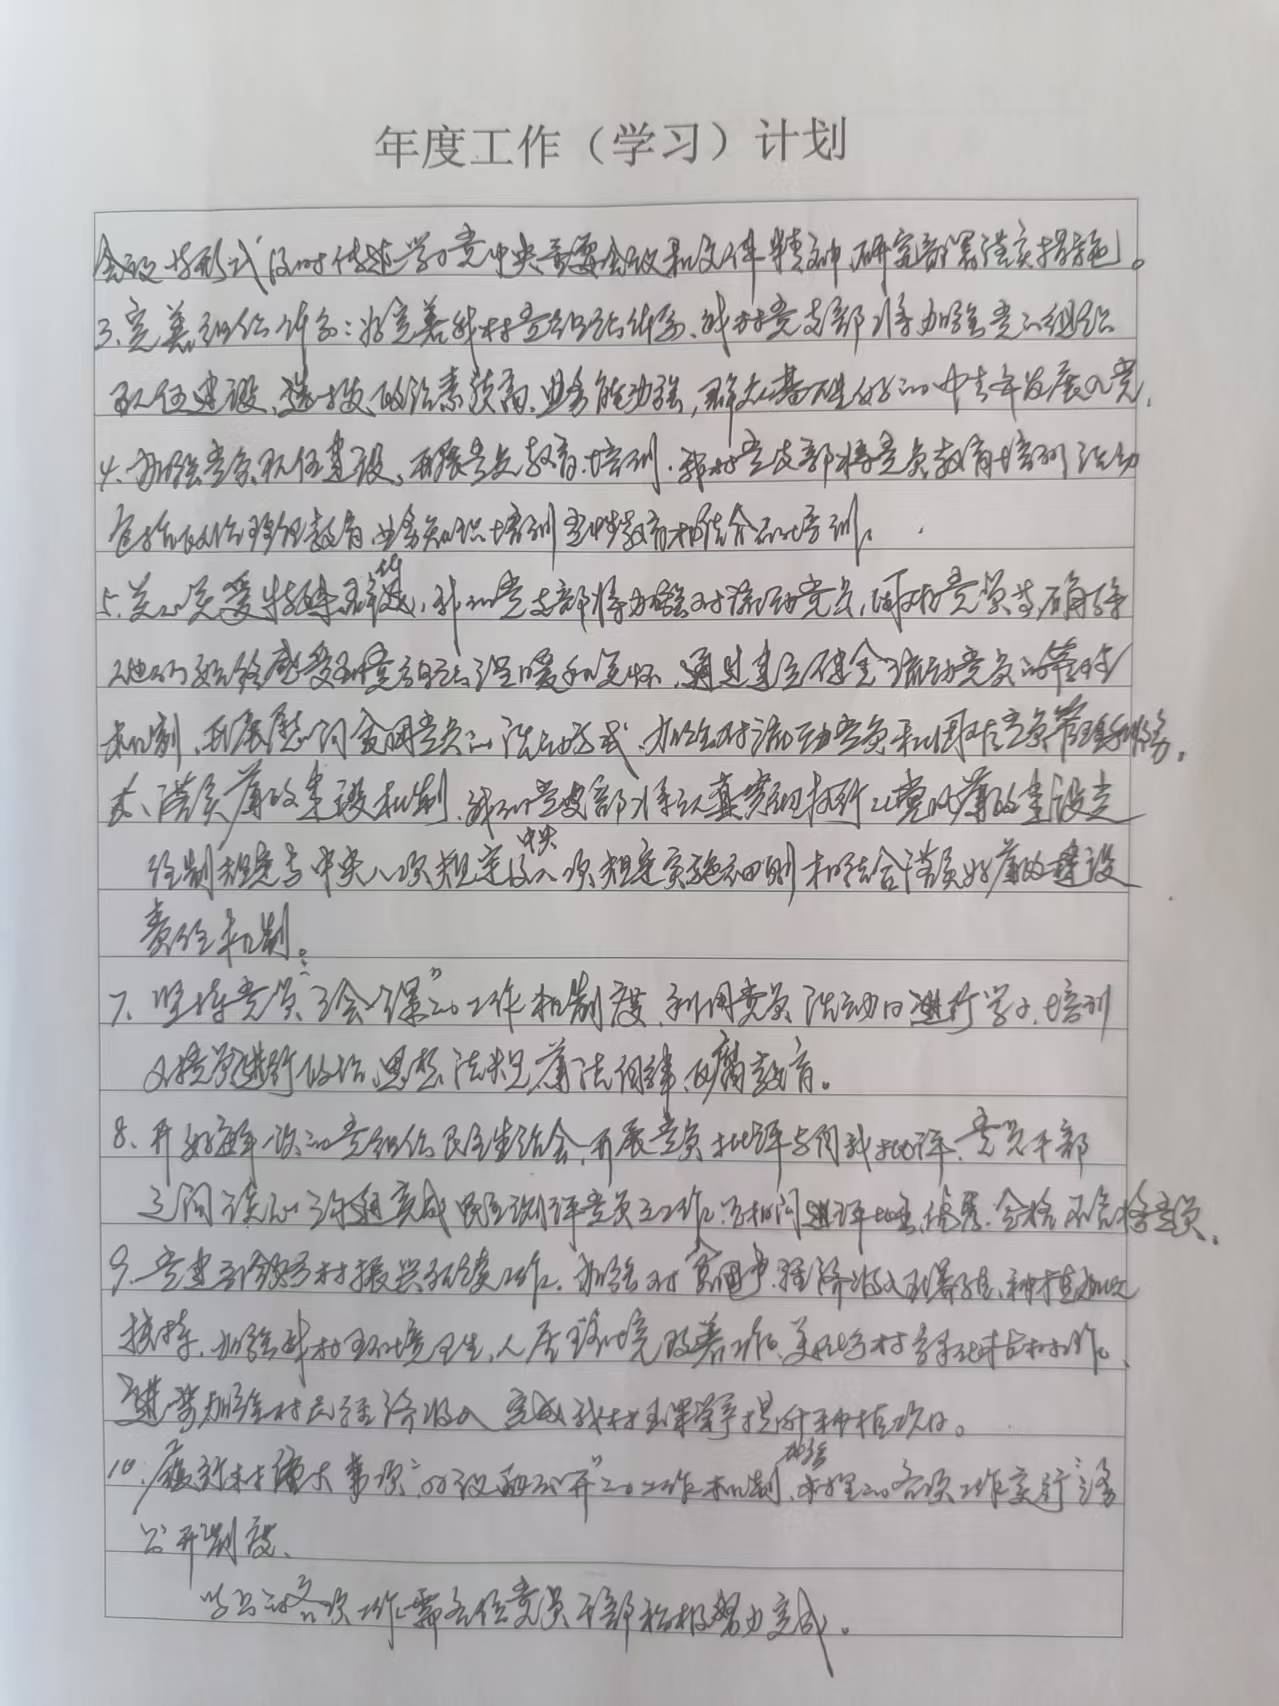 年度工作（学习）计划
会议等形式及时传达学习党中央重要会议和文件精神，研究部署落实措施。
3.完善组织体系：为完善我村党组织体系，我村党支部将加强党的组织
队伍建设、选拔政治素质高、业务能力强，群众基础好的中青年发展入党，
4.加强党员队伍建设，开展党员教育培训，我村党支部将党员教育培训活动
包括政治理论教育业务知识培训党性教育相结合的培训。
5.关心关爱特殊群体，我的党支部将加强对流动党员，困难党员等，确保
他们始终感受到党组织温暖和关怀，通过建立健全流动党员的管理
机制，开展慰问贫困党员的活动形式，加强对流动党员和困难党员管理和服务。
6、落实廉政建设机制，我的党支部将认真贯彻执行党风廉政建设责
任制规定与中央八项规定及中央八项规定实施细则相结合落实好廉政建设
责任机制。
7、坚持党员“三会一课”的工作机制度，利用党员活动日进行学习、培训
对党员进行政治、思想、法规、廉洁自律、反腐教育。
8、开好每年一次的党组织民主生活会，开展党员批评与自我批评，党员干部
之间谈心谈话，完成民主测评党员工作，互相间进评出优秀、合格、不合格党员。
9、党建引领乡村振兴衔接工作，加强对贫困户经济收入、种植
扶持，加强我村环境卫生，人居环境改善工作、美化乡村工作，
进一步加强村民经济收入完成我村玉米单产提升种植项目。
10、履行村重大事项“四议两公开”的工作机制，加强村里的各项工作实行三务
公开制度、
学习的各项工作需各位党员干部积极努力完成。